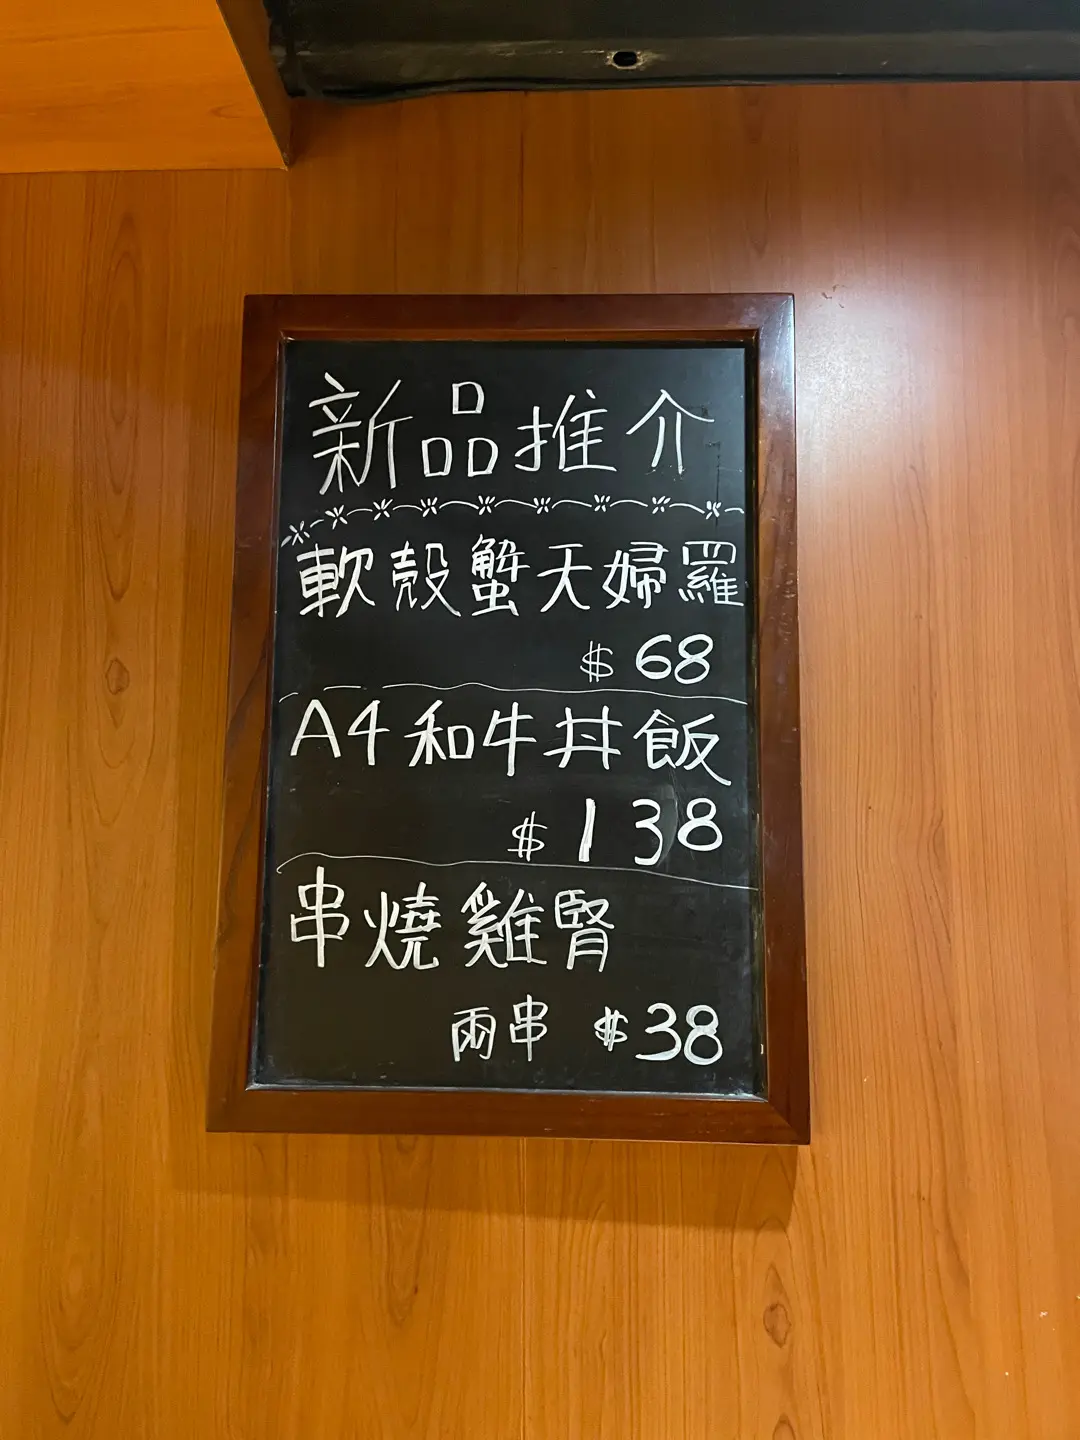 新品推介
軟殼蟹天婦羅
$ 68
A4和牛丼飯
$ 138
串燒雞腎
兩串 $38